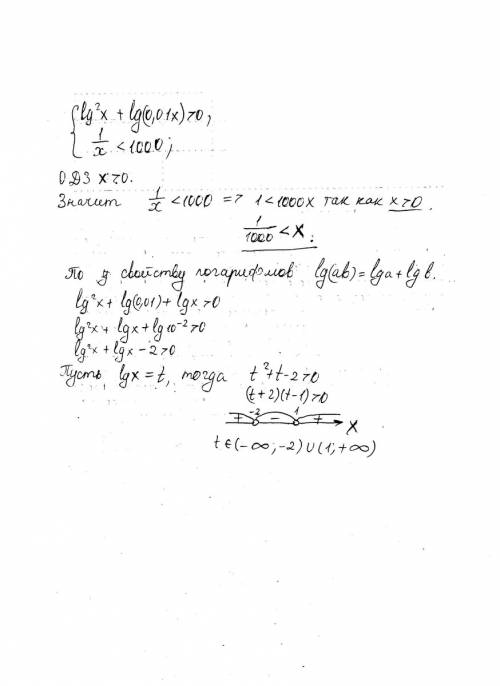 { lg²x + lg(0,01x) > 0,
1/x < 1000;
ОДЗ x>0.
Значит 1/x < 1000 => 1 < 1000x так как x>0.
1/1000 < x.
По свойству логарифмов lg(ab) = lg a + lg b.
lg²x + lg(0,01) + lgx > 0
lg²x + lgx + lg10⁻² > 0
lg²x + lgx - 2 > 0
Пусть lgx = t, тогда t² + t - 2 > 0
(t+2)(t-1) > 0
+ -2 - 1 + x
t ∈ (-∞; -2) ∪ (1; +∞)